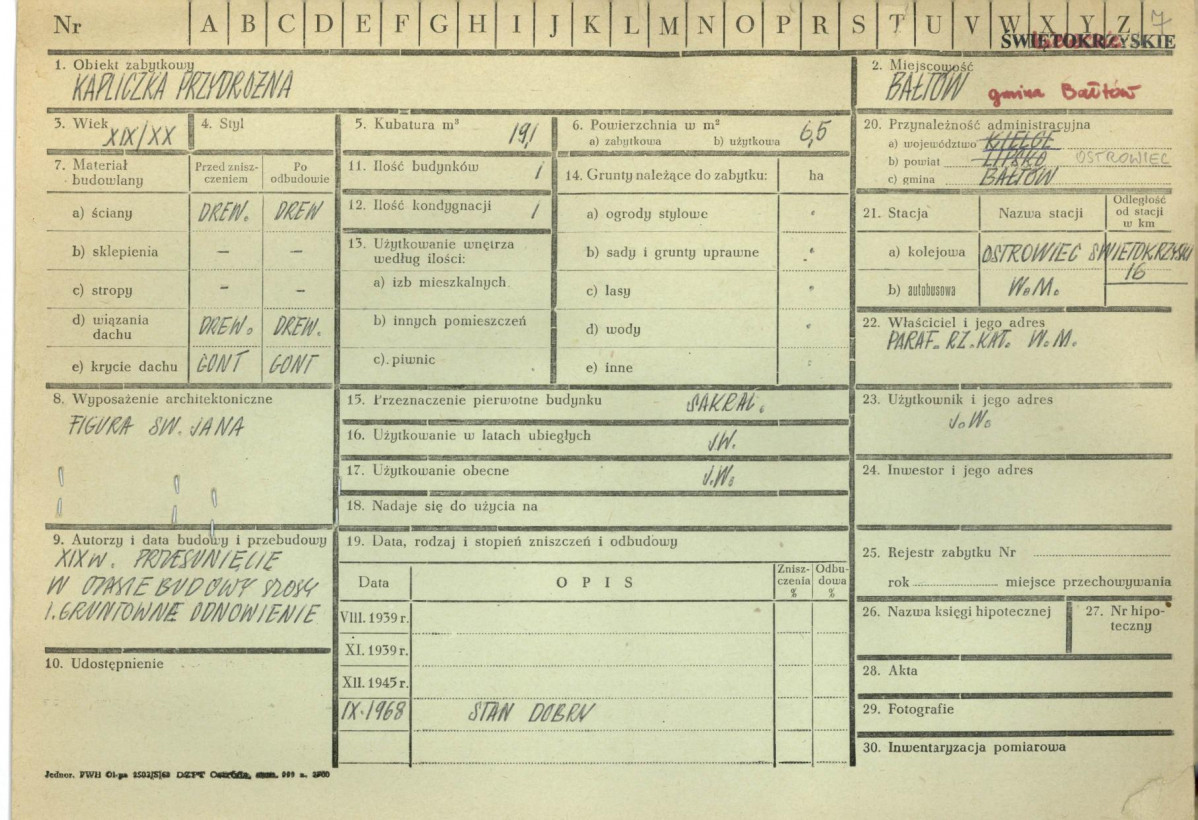 Nr A B C D E F G H I J K L M N O P R S T U V W X Y Z 7
ŚWIĘTOKRZYSKIE
1. Obiekt zabytkowy
KAPLICZKA PRZYDROŻNA
2. Miejscowość
BAŁTÓW gmina Bałtów
3. Wiek XIX/XX
4. Styl
5. Kubatura m³ 19,1
6. Powierzchnia w m² 6,5
a) zabytkowa b) użytkowa
7. Materiał budowlany
Przed zniszczeniem
Po odbudowie
a) ściany DREW. DREW
b) sklepienia – –
c) stropy – –
d) wiązania dachu DREW. DREW.
e) krycie dachu GONT GONT
8. Wyposażenie architektoniczne
FIGURA ŚW. JANA
9. Autorzy i data budowy i przebudowy
XIX W. PRZESUNIĘCIE
W CZASIE BUDOWY SZOSY
I. GRUNTOWNE ODNOWIENIE
10. Udostępnienie
11. Ilość budynków 1
12. Ilość kondygnacji 1
13. Użytkowanie wnętrza według ilości:
a) izb mieszkalnych
b) innych pomieszczeń
c) piwnic
14. Grunty należące do zabytku: ha
a) ogrody stylowe
b) sady i grunty uprawne
c) lasy
d) wody
e) inne
15. Przeznaczenie pierwotne budynku SAKRAL.
16. Użytkowanie w latach ubiegłych J.W.
17. Użytkowanie obecne J.W.
18. Nadaje się do użycia na
19. Data, rodzaj i stopień zniszczeń i odbudowy
Data OPIS Zniszczenia % Odbudowa %
VIII. 1939 r.
XI. 1939 r.
XII. 1945 r.
IX. 1968 STAN DOBRY
20. Przynależność administracyjna
a) województwo KIELCE
b) powiat LIPSKO OSTROWIEC
c) gmina BAŁTÓW
21. Stacja Nazwa stacji Odległość od stacji w km
a) kolejowa OSTROWIEC ŚWIĘTOKRZYSKI 16
b) autobusowa W.M.
22. Właściciel i jego adres
PARAF. RZ. KAT. W.M.
23. Użytkownik i jego adres
J.W.
24. Inwestor i jego adres
25. Rejestr zabytku Nr
rok miejsce przechowywania
26. Nazwa księgi hipotecznej
27. Nr hipoteczny
28. Akta
29. Fotografie
30. Inwentaryzacja pomiarowa